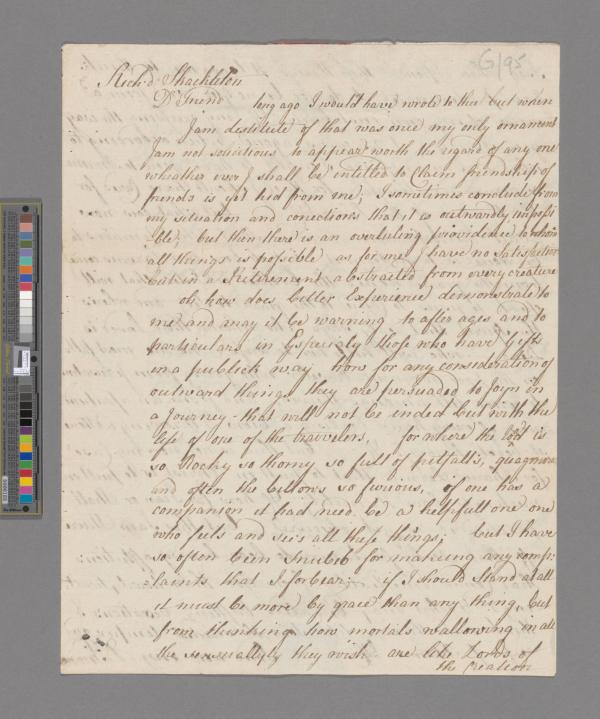 G/95
Rich:d Shackleton
Dr Friend long ago I would have wrote to thee but when
I am destitute of that was once my only ornament
I am not solicitous to appear worth the regard of any one
wheather ever I shall be intitled to Claim friendship of
friends is yet hid from me; I sometimes conclude from
my situation and conections that it is outwardly imposi
-ble, but then there is an overruling providence to whom
all things is possible as for me I have no Satisfaction
but in a Retirement abstracted from every creature
oh how does bitter Experience demonstrate to
me and may it be warning to after ages and to
particulars in Especialy those who have Gifts
in a publick way, how for any consideration of
outward things they are persuaded to Joyn in
a Journey - that will not be inded but with the
life of one of the traivelers, for where the is
so Rocky so thorny so full of pitfalls, quagmires
and often the billows so furious, if one has a
companion it had need be a helpfull one one
who feels and see's all these things; but I have
so often been Snubed for makeing any comp:
:laints that I forbear; if I should Stand at all
it must be more by grace than any thing, but
from thinking how mortals wallowing in all
the sensuallyty they wish are like Lords of
the Creation